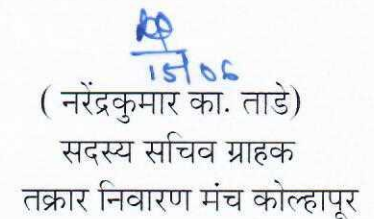 15/06
( नरेंद्रकुमार का. ताडे)
सदस्य सचिव ग्राहक
तक्रार निवारण मंच कोल्हापूर